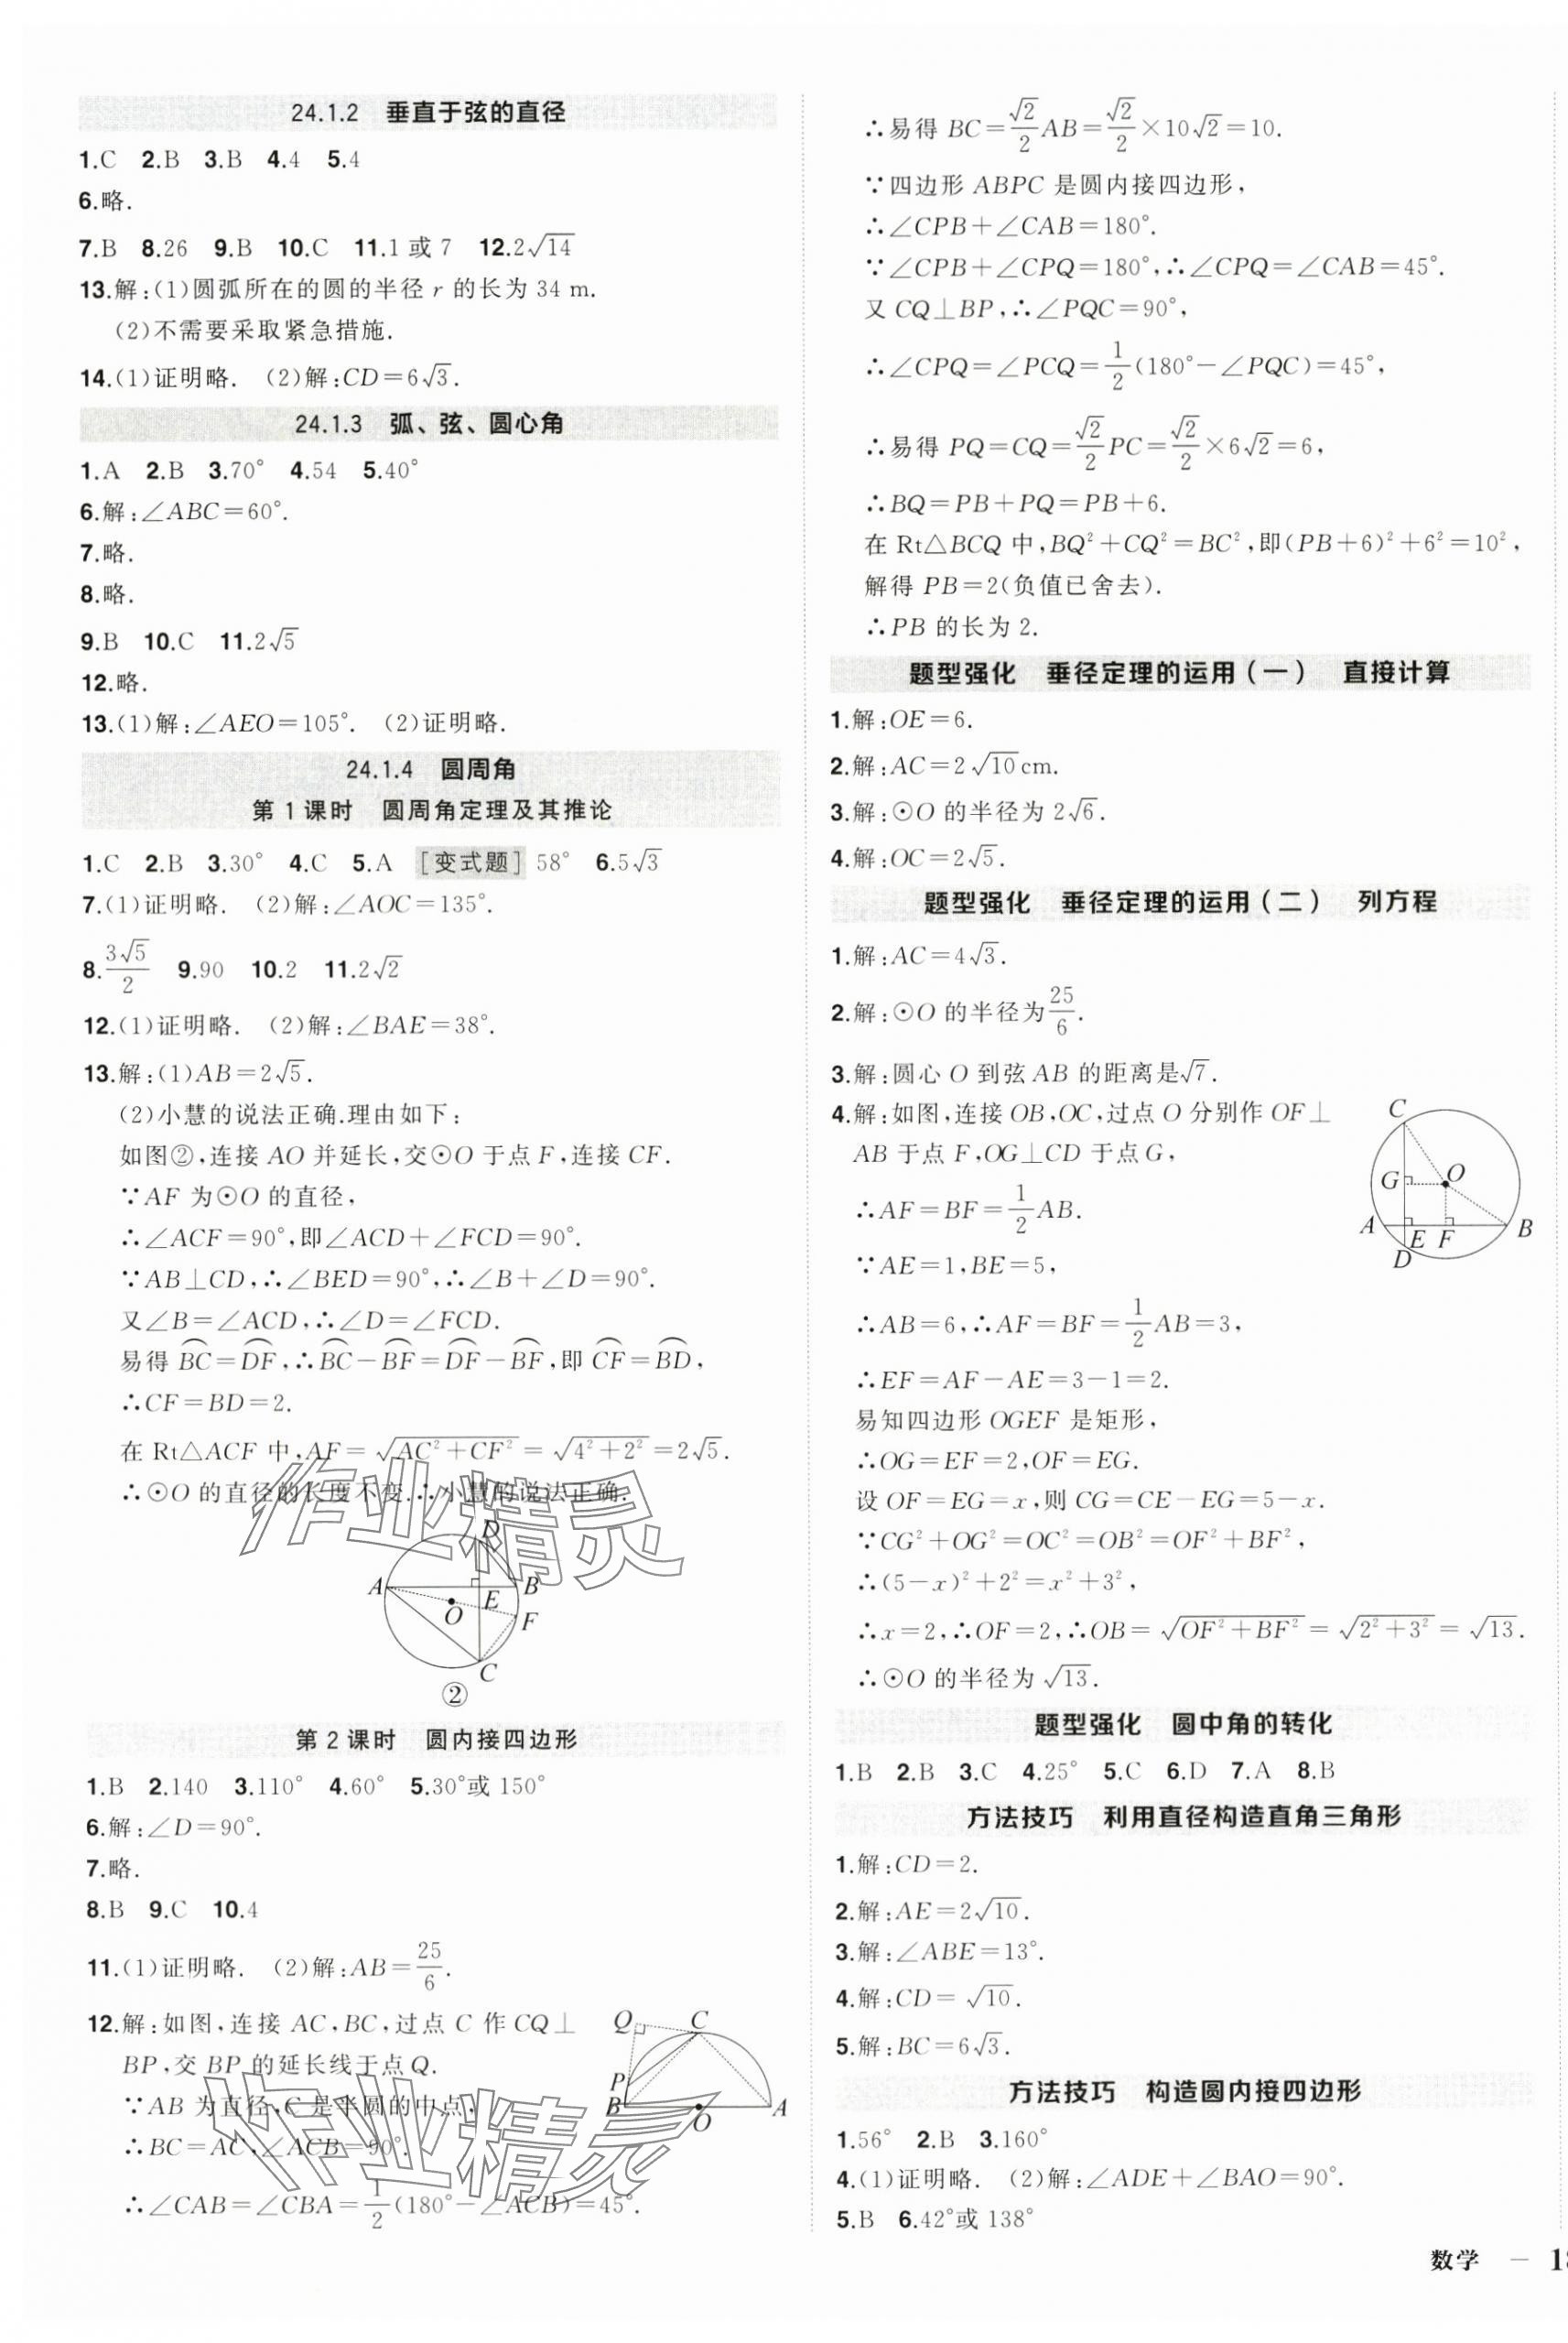 24.1.2 垂直于弦的直径
1.C 2.B 3.B 4.4 5.4
6.略.
7.B 8.26 9.B 10.C 11.1 或 7 12.2√14
13.解:(1)圆弧所在的圆的半径 r 的长为 34 m.
(2)不需要采取紧急措施.
14.(1)证明略. (2)解:CD=6√3.
24.1.3 弧、弦、圆心角
1.A 2.B 3.70° 4.54 5.40°
6.解:∠ABC=60°.
7.略.
8.略.
9.B 10.C 11.2√5
12.略.
13.(1)解:∠AEO=105°. (2)证明略.
24.1.4 圆周角
第 1 课时 圆周角定理及其推论
1.C 2.B 3.30° 4.C 5.A [变式题] 58° 6.5√3
7.(1)证明略. (2)解:∠AOC=135°.
8.3√5/2 9.90 10.2 11.2√2
12.(1)证明略. (2)解:∠BAE=38°.
13.解:(1)AB=2√5.
(2)小慧的说法正确.理由如下:
如图②,连接 AO 并延长,交⊙O 于点 F,连接 CF.
∵AF 为⊙O 的直径,
∴∠ACF=90°,即∠ACD+∠FCD=90°.
∵AB⊥CD,∴∠BED=90°,∴∠B+∠D=90°.
又∠B=∠ACD,∴∠D=∠FCD.
易得 BC⌒=DF⌒,∴BC⌒-BF⌒=DF⌒-BF⌒,即 CF⌒=BD⌒,
∴CF=BD=2.
在 Rt△ACF 中,AF=√(AC²+CF²)=√(4²+2²)=2√5.
∴⊙O 的直径的长度不变.∴小慧的说法正确.
作业精灵
D
A B
E
O F
C
②
第 2 课时 圆内接四边形
1.B 2.140 3.110° 4.60° 5.30°或 150°
6.解:∠D=90°.
7.略.
8.B 9.C 10.4
11.(1)证明略. (2)解:AB=25/6.
12.解:如图,连接 AC,BC,过点 C 作 CQ⊥
BP,交 BP 的延长线于点 Q.
∵AB 为直径,C 是半圆的中点,
∴BC=AC,∠ACB=90°.
∴∠CAB=∠CBA=1/2(180°-∠ACB)=45°.
Q C
P
B O A
作业精灵
∴易得 BC=√2/2AB=√2/2×10√2=10.
∵四边形 ABPC 是圆内接四边形,
∴∠CPB+∠CAB=180°.
∵∠CPB+∠CPQ=180°,∴∠CPQ=∠CAB=45°.
又 CQ⊥BP,∴∠PQC=90°,
∴∠CPQ=∠PCQ=1/2(180°-∠PQC)=45°,
∴易得 PQ=CQ=√2/2PC=√2/2×6√2=6,
∴BQ=PB+PQ=PB+6.
在 Rt△BCQ 中,BQ²+CQ²=BC²,即(PB+6)²+6²=10²,
解得 PB=2(负值已舍去).
∴PB 的长为 2.
题型强化 垂径定理的运用(一) 直接计算
1.解:OE=6.
2.解:AC=2√10cm.
3.解:⊙O 的半径为 2√6.
4.解:OC=2√5.
题型强化 垂径定理的运用(二) 列方程
1.解:AC=4√3.
2.解:⊙O 的半径为25/6.
3.解:圆心 O 到弦 AB 的距离是√7.
4.解:如图,连接 OB,OC,过点 O 分别作 OF⊥
AB 于点 F,OG⊥CD 于点 G,
∴AF=BF=1/2AB.
∵AE=1,BE=5,
∴AB=6,∴AF=BF=1/2AB=3,
∴EF=AF-AE=3-1=2.
易知四边形 OGEF 是矩形,
∴OG=EF=2,OF=EG.
设 OF=EG=x,则 CG=CE-EG=5-x.
∵CG²+OG²=OC²=OB²=OF²+BF²,
∴(5-x)²+2²=x²+3²,
∴x=2,∴OF=2,∴OB=√(OF²+BF²)=√(2²+3²)=√13.
∴⊙O 的半径为√13.
C
G O
A E F B
D
题型强化 圆中角的转化
1.B 2.B 3.C 4.25° 5.C 6.D 7.A 8.B
方法技巧 利用直径构造直角三角形
1.解:CD=2.
2.解:AE=2√10.
3.解:∠ABE=13°.
4.解:CD=√10.
5.解:BC=6√3.
方法技巧 构造圆内接四边形
1.56° 2.B 3.160°
4.(1)证明略. (2)解:∠ADE+∠BAO=90°.
5.B 6.42°或 138°
数学 —